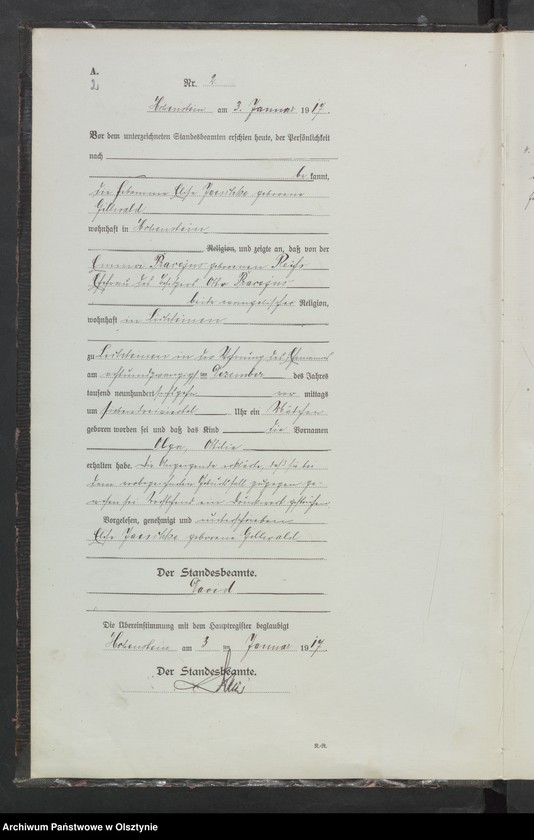 A.
2
Nr. 2
Hohenstein am 3. Januar 1917.
Vor dem unterzeichneten Standesbeamten erschien heute, der Persönlichkeit
nach
be kannt,
die Hebamme Elise geborene
Gellwald
wohnhaft in Hohenstein
Religion, und zeigte an, daß von der
Emma geborenen
Ehefrau des Otto
beide evangelischer Religion,
wohnhaft in
zu in der Wohnung des Ehemannes
am achtundzwanzigsten Dezember des Jahres
tausend neunhundert sechzehn vor mittags
um Uhr ein Mädchen
geboren worden sei und daß das Kind die Vornamen
Olga, Ottilie
erhalten habe. Die Anzeigende erklärte, daß sie bei
dem vorbezeichneten Geburtsfall zugegen ge-
wesen sei. Vorstehend ein Druckwort gestrichen.
Vorgelesen, genehmigt und unterschrieben
Elise geborene Gellwald
Der Standesbeamte.
David
Die Übereinstimmung mit dem Hauptregister beglaubigt
Hohenstein am 3 ten Januar 1917.
Der Standesbeamte.
R.-R.
Archiwum Państwowe w Olsztynie